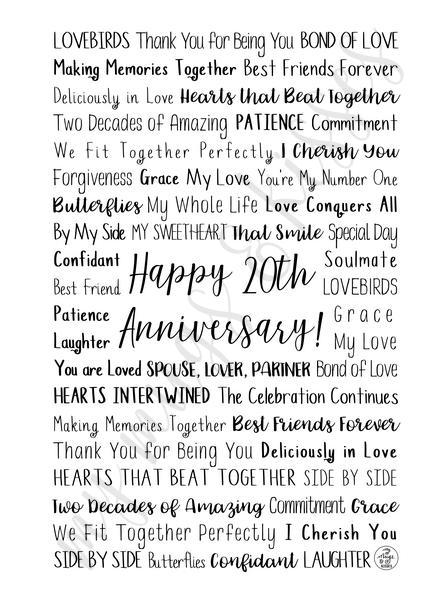 LOVEBIRDS Thank You for Being You BOND OF LOVE
Making Memories Together Best Friends Forever
Deliciously in Love Hearts that Beat Together
Two Decades of Amazing PATIENCE Commitment
We Fit Together Perfectly I Cherish You
Forgiveness Grace My Love You're My Number One
Butterflies My Whole Life Love Conquers All
By My Side MY SWEETHEART That Smile Special Day
Confidant Happy 20th Soulmate
Best Friend LOVEBIRDS
Patience Anniversary! Grace
Laughter My Love
You are Loved SPOUSE, LOVER, PARTNER Bond of Love
HEARTS INTERTWINED The Celebration Continues
Making Memories Together Best Friends Forever
Thank You for Being You Deliciously in Love
HEARTS THAT BEAT TOGETHER SIDE BY SIDE
Two Decades of Amazing Commitment Grace
We Fit Together Perfectly I Cherish You
SIDE BY SIDE Butterflies Confidant LAUGHTER